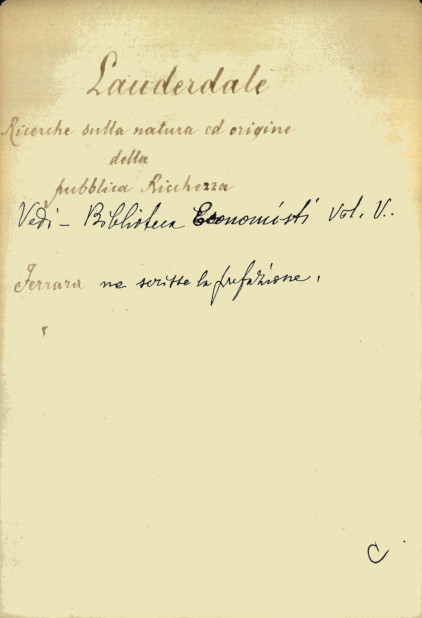 Lauderdale
Ricerche sulla natura ed origine
della
pubblica Ricchezza
Vedi - Biblioteca Economisti Vol. V..
Ferrara ne scrisse la prefazione.
C